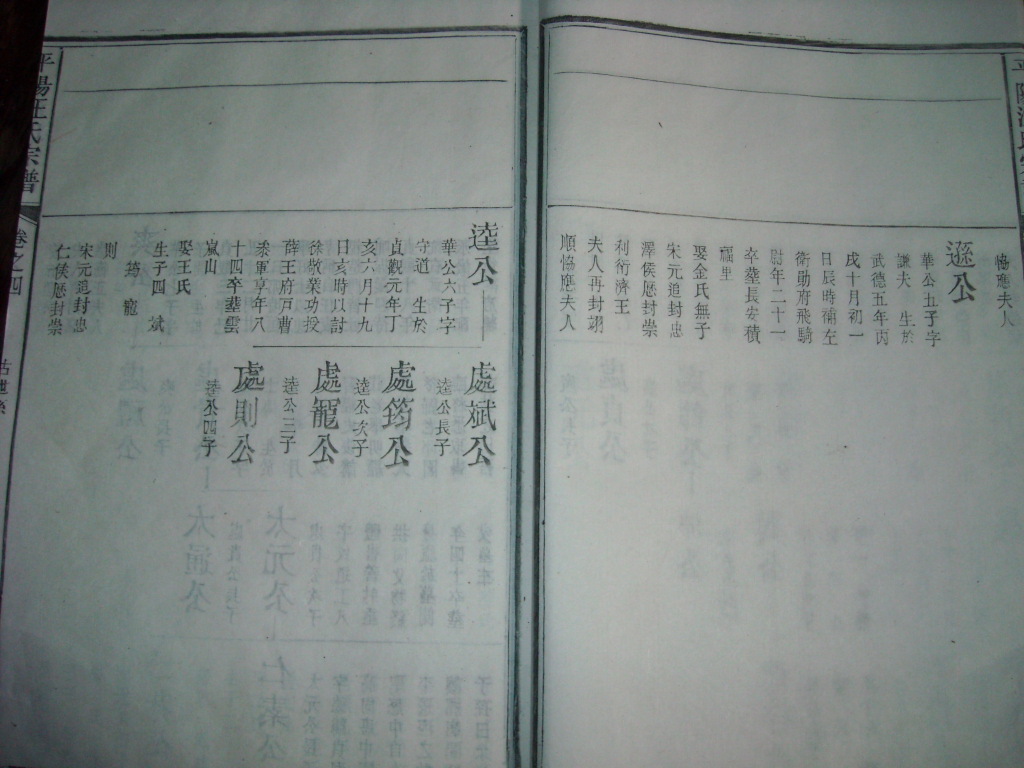 協應夫人
遜公
華公五子字
謙夫 生於
武德五年丙
戌十月初一
日辰時補左
衛勛府飛騎
尉年二十一
卒塟長安積
福里
娶金氏無子
宋元追封忠
澤侯歴封崇
利衍濟王
夫人再封翊
順恊應夫人
逵公
華公六子字
守道 生於
貞觀元年丁
亥六月十九
日亥時以討
徐敬業功授
薛王府戸曹
叅軍享年八
十四卒塟雲
嵐山
娶王氏
生子四 斌
筠 寵
則
宋元追封忠
仁侯歴封崇
處斌公
逵公長子
處筠公
逵公次子
處寵公
逵公三子
處則公
逵公四子
平陽汪氏宗譜
卷之四